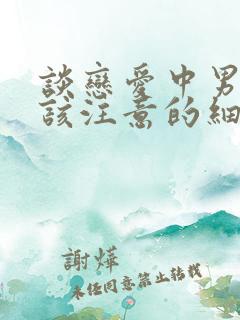 談戀愛中男
該注意的細
謝燁
未任同意禁止轉載